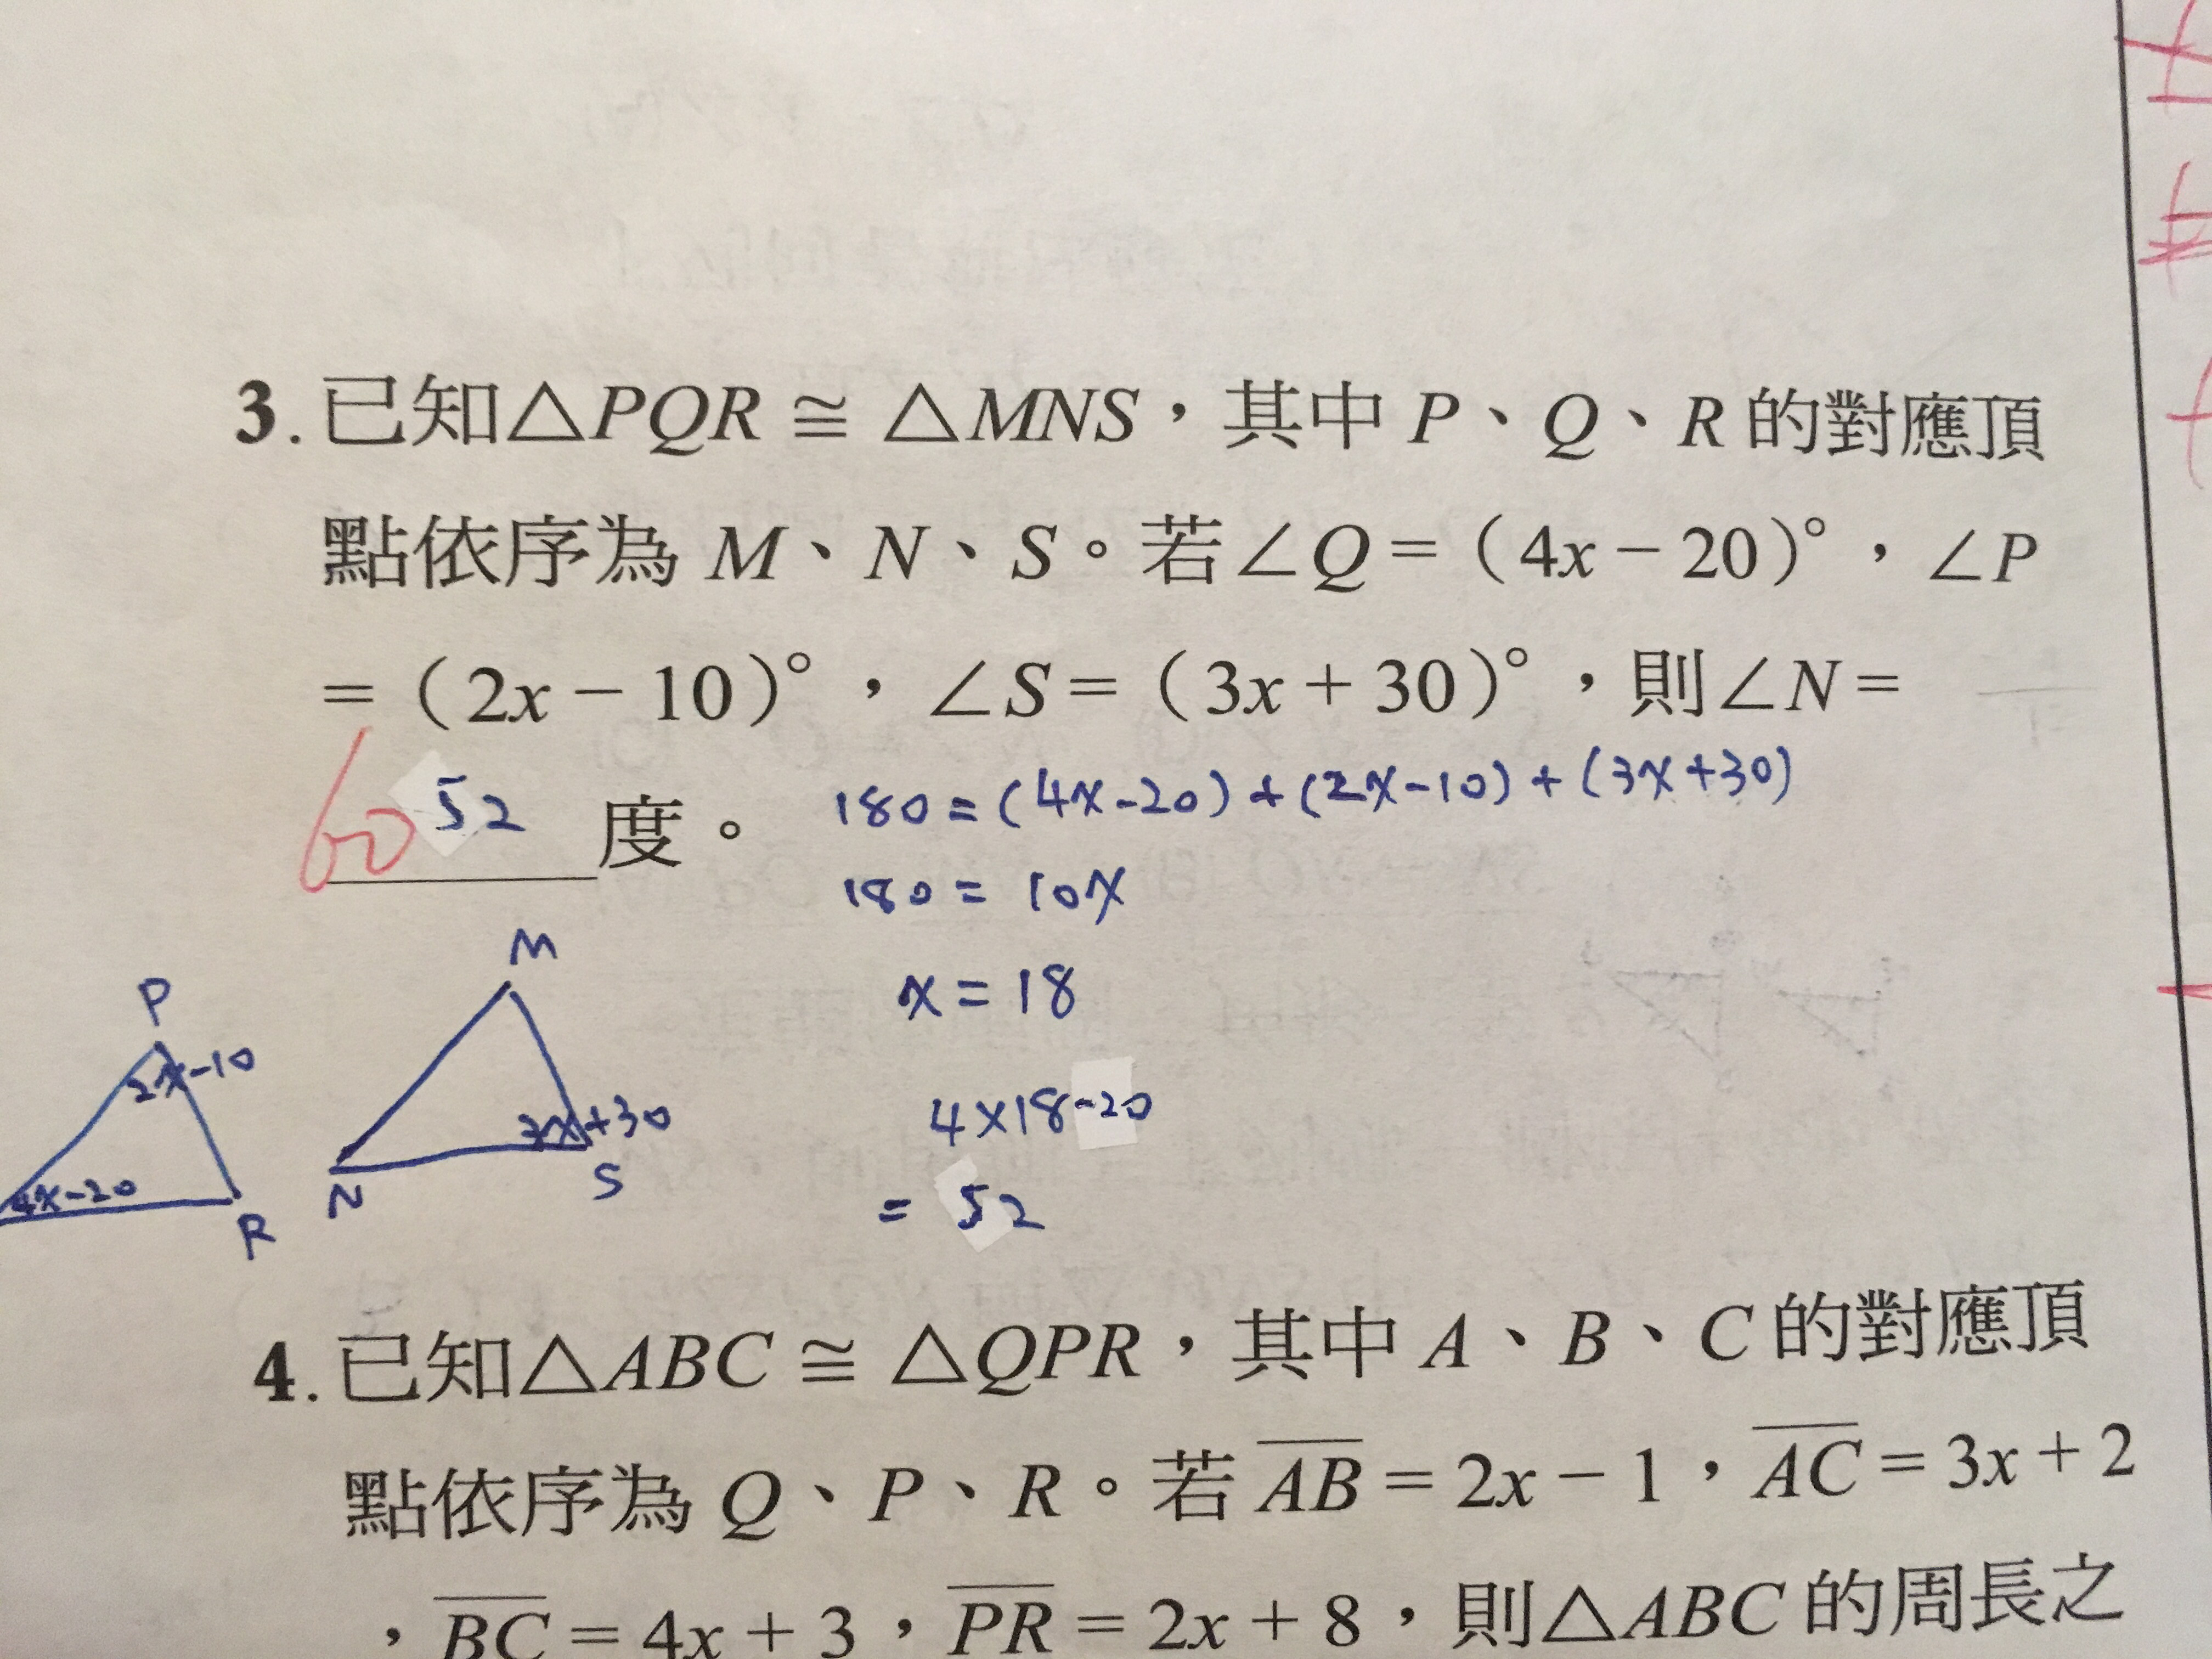 3. 已知△PQR ≅ △MNS，其中 P、Q、R 的對應頂
點依序為 M、N、S。若∠Q＝（4x－20）°，∠P
＝（2x－10）°，∠S＝（3x＋30）°，則∠N＝
60 52 度。
180=(4x-20)+(2x-10)+(3x+30)
180= 10x
x=18
4×18-20
= 52
P
2x-10
4x-20
R
M
3x+30
N
S
4. 已知△ABC ≅ △QPR，其中 A、B、C 的對應頂
點依序為 Q、P、R。若 AB＝2x－1，AC＝3x＋2
，BC＝4x＋3，PR＝2x＋8，則△ABC 的周長之